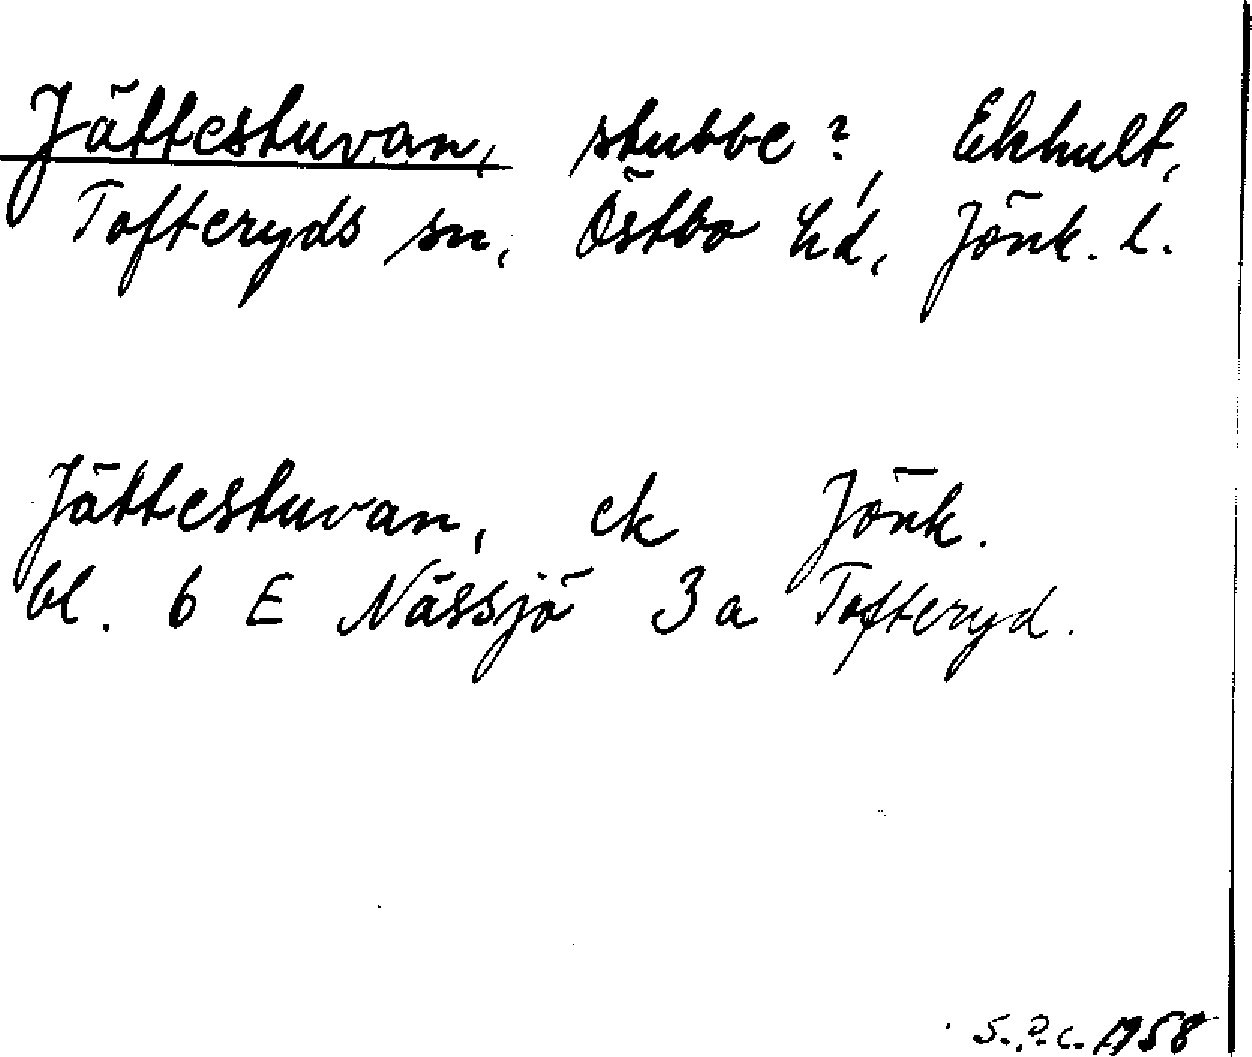 Jättestuvan, stubbe?, Ekhult,
Tofteryds sn, Östbo hd, Jönk. l.
Jättestuvan, ek Jönk.
bl. 6 E Nässjö 3 a Tofteryd.
1958